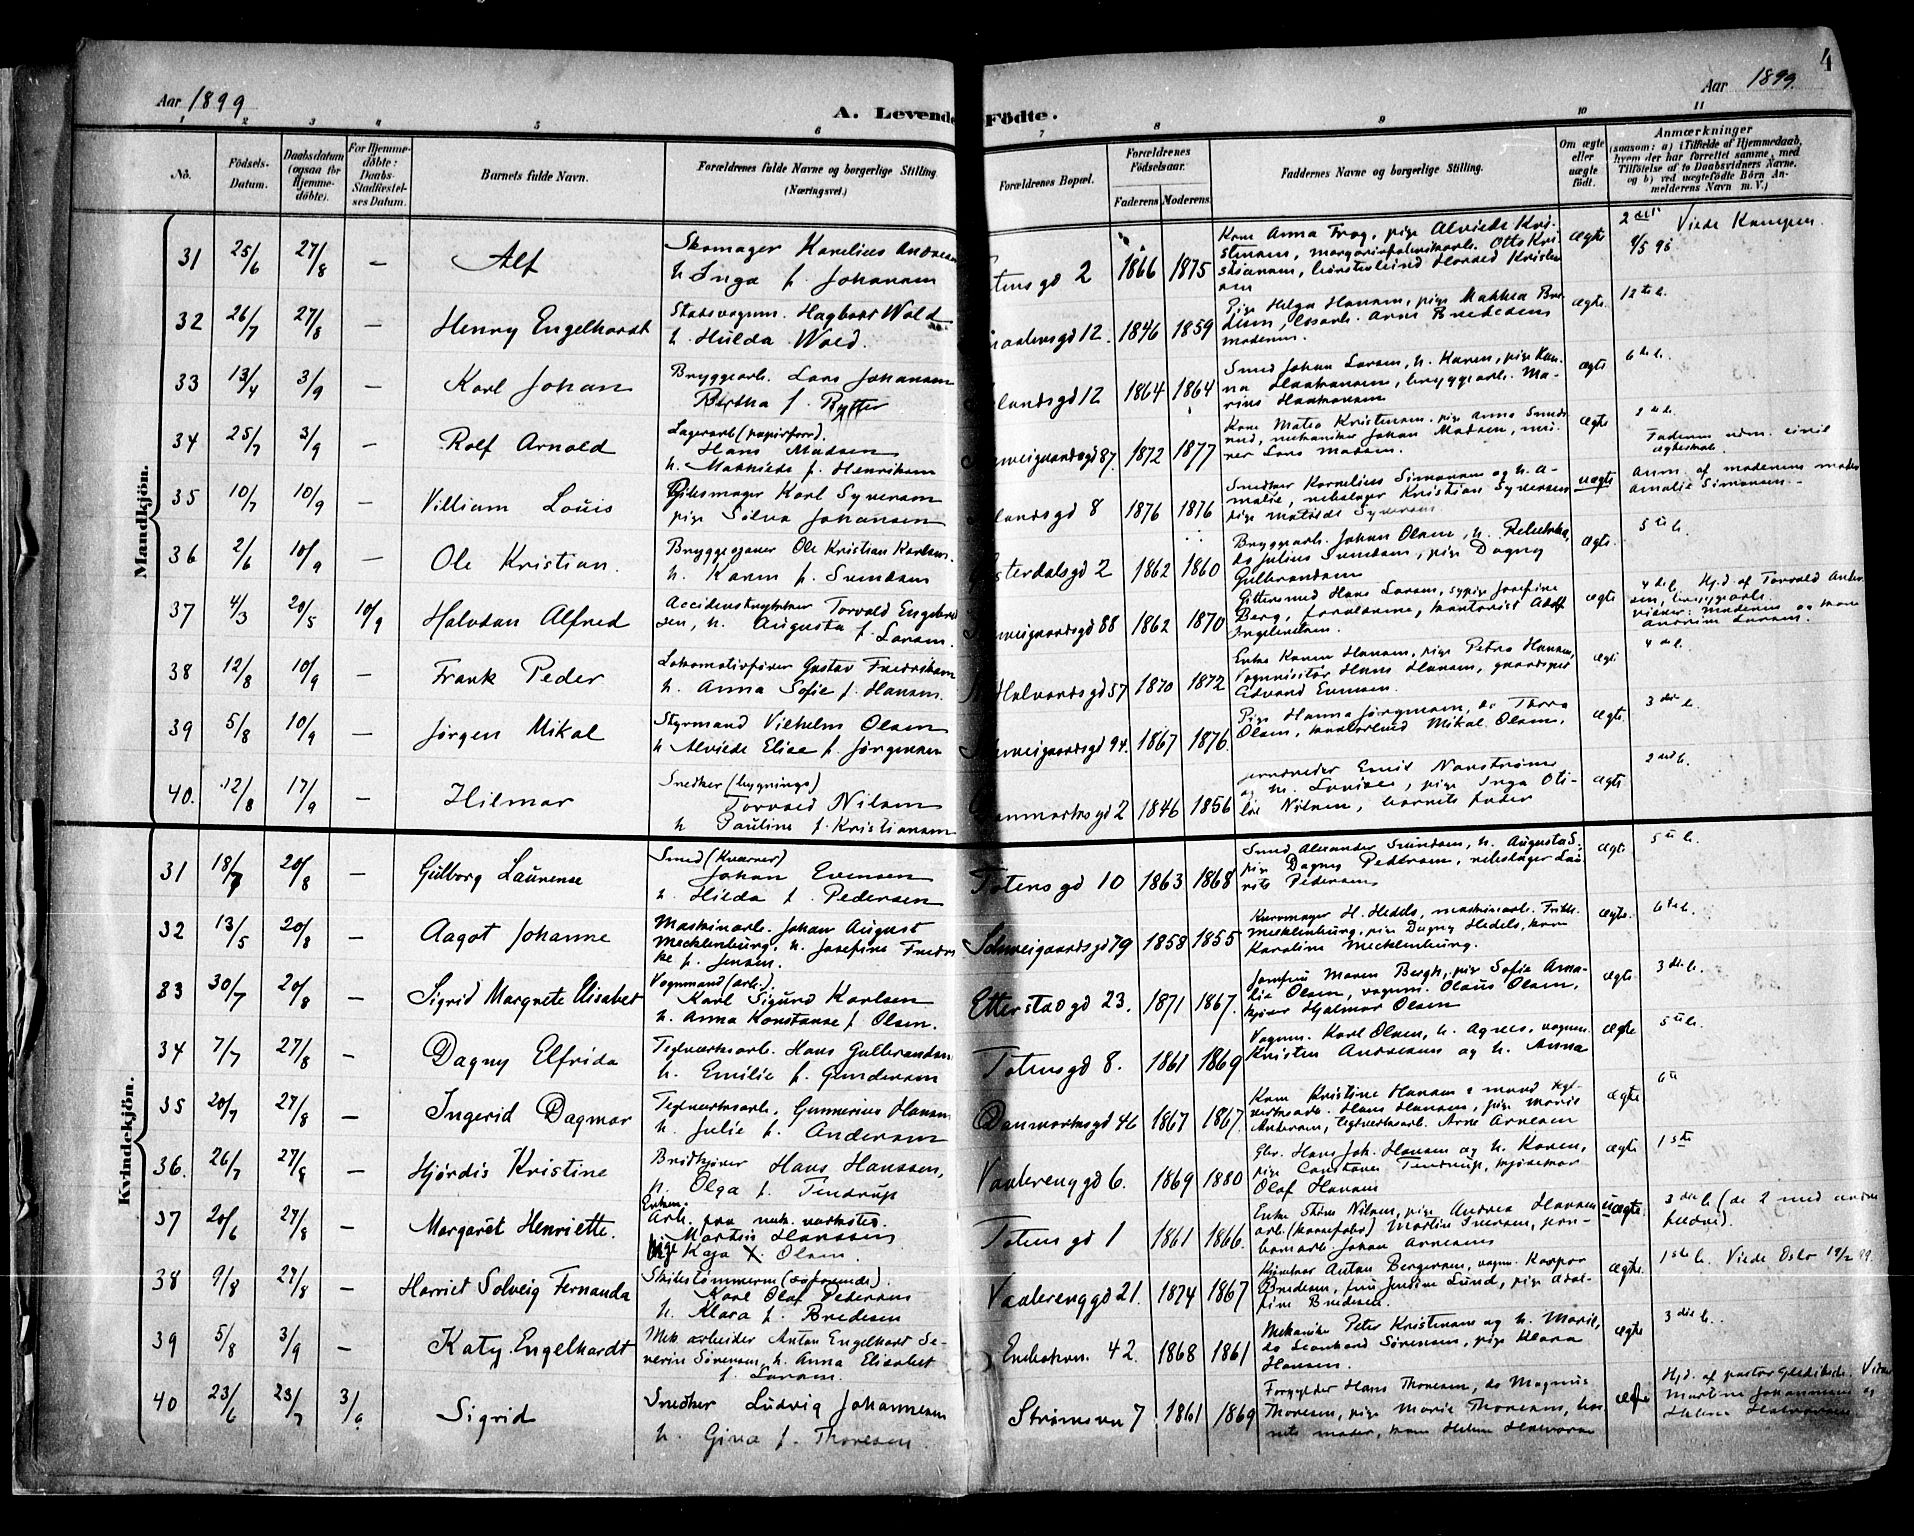 4
Aar 1899
Aar 1899.
A. Levende Fødte.
1 2 3 4 5 6 7 8 9 10 11
No.
Fødsels-
Datum.
Daabsdatum
(ogsaa for
Hjemme-
døbte).
For Hjemme-
døbte:
Daabs-
Stadfæstel-
ses Datum.
Barnets fulde Navn.
Forældrenes fulde Navne og borgerlige Stilling.
(Næringsvei.)
Forældrenes Bopæl.
Forældrenes
Fødselsaar.
Faderens Moderens
Faddernes Navne og borgerlige Stilling.
Om ægte
eller
uægte
født.
Anmærkninger
(saasom: a) i Tilfælde af Hjemmedaab,
hvem der har forrettet samme, med
Tilføielse af to Daabsvidners Navne.
og b) ved uægtefødte Børn An-
melderens Navn m. V.)
Mandkjøn.
31 25/6 27/8 — Alf
Skomager Karelius Andresen
h. Inga f. Johansen
2 1866 1875
Kone Anna Frog, pige Alvilde Kri-
Otto Kri-
ægte
9/5 96 Viede Kampen.
32 26/7 27/8 — Henry Engelhardt
Hagbart Wold
h. Hulda Wold.
12. 1846 1859
Pige Helga Hansen, pige Mathea Bre-
Arne Bredesens
moderen.
ægte.
12te b.
33 13/4 3/9 — Karl Johan
Bryggearb. Lars Johansen
Bertha f. Rytter
12 1864 1864
Smed Johan Larsen, h. Karen, pige Han-
na Haakonsen, bryggearb. Ma-
rius Haakonsen
ægte
6te b.
34 25/7 3/9 — Rolf Arnold
Lagerarb (papirforr).
Hans Madsen
h. Mathilde f. Henriksen
87. 1872 1877
Kone Matea Kristensen, pige Anna
mekaniker Johan Madsen, mu-
rer Lars Madsen.
ægte
35 10/7 10/9 — Villiam Louis
Karl Syversen
pige Silva Johansen
8 1876 1876
Snedker Kornelius Simonsen og h. A-
malie, rebslager Kristian Syversen
pige Matilde Syversen
uægte
Anm. af moderens moder
Amalie Simonsen.
36 2/6 10/9 — Ole Kristian.
Bryggeeier Ole Kristian Karlsen.
h. Karen f. Svendsen
2 1862 1860
Bryggearb. Johan Olsen, h.
do Julius Svendsen, pige Dagny
Gulbrandsen
ægte.
5te b.
37 4/3 20/5 10/9 Halvdan Alfred
Torvald Engebret
sen, h. Augusta f. Larsen.
88 1862 1870
Hans Larsen, sypige Josefine
Berg, kontorist Adolf
Ingebretsen.
ægte
4de b. Hj.d. af Torvald Ander
sen, bryggearb.
vidner: moderen og kone
Larsen.
38 12/8 10/9 — Frank Peder
Lokomotivfører Gustav Fredriksen
h. Anna Sofie f. Hansen.
Halvardsgd 57 1870 1872
Enke Karen Hansen, pige Petra Hansen,
Vognvisitør Hans Hansen,
Edvard Evensen.
ægte
4de b.
39 5/8 10/9 — Jørgen Mikal
Styrmand Vilhelm Olsen
h. Alvilde Elise f. Jørgensen
94. 1867 1876.
Pige Hanna Jørgensen, do Thora
Olsen, kontorbud Mikal Olsen.
ægte.
3die b.
40. 12/8 17/9 — Hilmar
Snedker (bygnings)
Torvald Nilsen
h. Pauline f. Kristiansen
2 1846 1856
Emil
og h. Lovise, pige Inga Oti-
lie Nilsen, barnets fader
ægte
2det b.
Kvindekjøn.
31 18/7 20/8 — Gulborg Laurense
Smed (Kværner)
Johan Evensen
h. Hilda f. Pedersen
Totensgd 10 1863 1868
Smed Alexander Svendsen, h. Augusta S.
pige Dagny Pedersen, rebslager Lau-
rits Pedersen
ægte.
5te b.
32 13/5 20/8 — Aagot Johanne
Maskinarb. Johan August
Mecklenburg, h. Josefine Fredrik-
ke f. Jensen.
Schweigaardsgd 79 1858 1855
Kurvmager H. Hedels, maskinarb. Fritz
Mecklenburg, pige Dagny Hedels, kone
Karoline Mecklenburg.
ægte.
6te b.
33 30/7 20/8 — Sigrid Margrete Elisabet
Vognmand (arb.).
Karl Sigurd Karlsen
h. Anna Konstanse f. Olsen.
Etterstadgd 23. 1871 1867.
Jomfru Maren Bergh, pige Sofie Ama-
lie Olsen, vognm. Olaus Olsen,
kjører Hjalmar Olsen
ægte.
3die b.
34 7/7 27/8 — Dagny Elfrida
Teglverksarb. Hans Gulbrandsen
h. Emilie f. Gundersen
Totensgd 8. 1861 1869
Vognm. Karl Olsen, h. Agnes, vognm.
Kristen Andresen og h. Anna
ægte
5te b.
35 20/7 27/8 — Ingerid Dagmar
Teglverksarb. Gunnerius Hansen
h. Julie f. Andersen
Danmarksgd 46 1867 1867.
Kone Kristine Hansen & mand tgl-
verksarb. Hans Hansen, pige Marie
Andersen, teglverksarb. Arne Arnesen
ægte
6te
36. 26/7 27/8 — Hjørdis Kristine
Brødkjører Hans Hanssen,
h. Olga f. Tendrup
Vaalerenggd 6. 1869 1880
Gbr. Hans Joh. Hansen og h. Karen,
pige Constance Tendrup,
Olaf Hansen
ægte
1ste
37 20/6 27/8 — Margaret Henriette.
Enkem.
Arb. paa mek. verksted.
Martin Hanssen
pige Kaja Olsen.
Totensgd 1 1861 1866.
Enke Nilsen, pige Andrea Hansen
Martin Iversen, jern-
banearb. Johan Arnesen
uægte.
3die b (de 2 med anden
fader).
38 9/8 27/8 — Harriet Solveig Fernanda
Skibstømmerm (søfarende).
Karl Olaf Pedersen
h. Klara f. Bredesen
Vaalerenggd 21. 1874 1867
Anton Bergersen, vognm. Kaspar
Bredesen, fru Jensine Lund, pige Adol-
fine Bredesen.
ægte.
1ste b. Viede Oslo 19/2 99.
39 5/8 3/9 — Katy Engelhardt
Mek. arbeider Anton Engelhart Se-
verin Sørensen, h. Anna Elisabet
f. Larsen.
42. 1868 1861
Mekaniker Peter Kristensen og h. Marie,
do Leonhard Sørensen, pige Klara
Hansen.
ægte
3die b.
40 23/6 23/7 3/9 Sigrid
Snedker Ludvig Johannesen
h. Gina f. Thoresen.
Strømsvn 7 1861 1869
Forgylder Hans Thoresen, do Magnus
Thoresen, pige Marie Thoresen, bar-
nets moder, kone Helene Halvorsen
ægte
Hj.d. af pastor Vidner
Martine Johannesen og
Helene Halvorsen